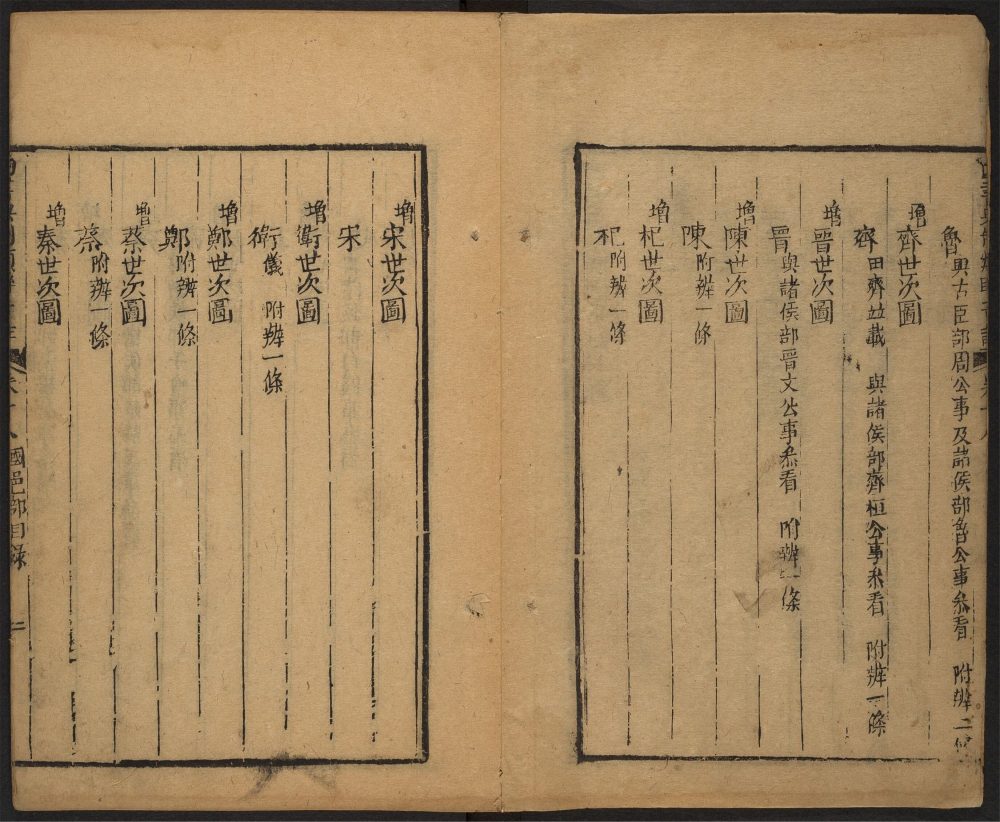 魯 與古臣部周公事及諸侯部魯公事叅看 附辨二條
增齊世次圖
齊 田齊並載 與諸侯部齊桓公事叅看 附辨一條
增晉世次圖
晉 與諸侯部晉文公事叅看 附辨一條
增陳世次圖
陳 附辨一條
增杞世次圖
杞 附辨一條
增宋世次圖
宋
增衛世次圖
衛 儀 附辨一條
增鄭世次圖
鄭 附辨一條
增蔡世次圖
蔡 附辨一條
增秦世次圖
國邑部目錄 二